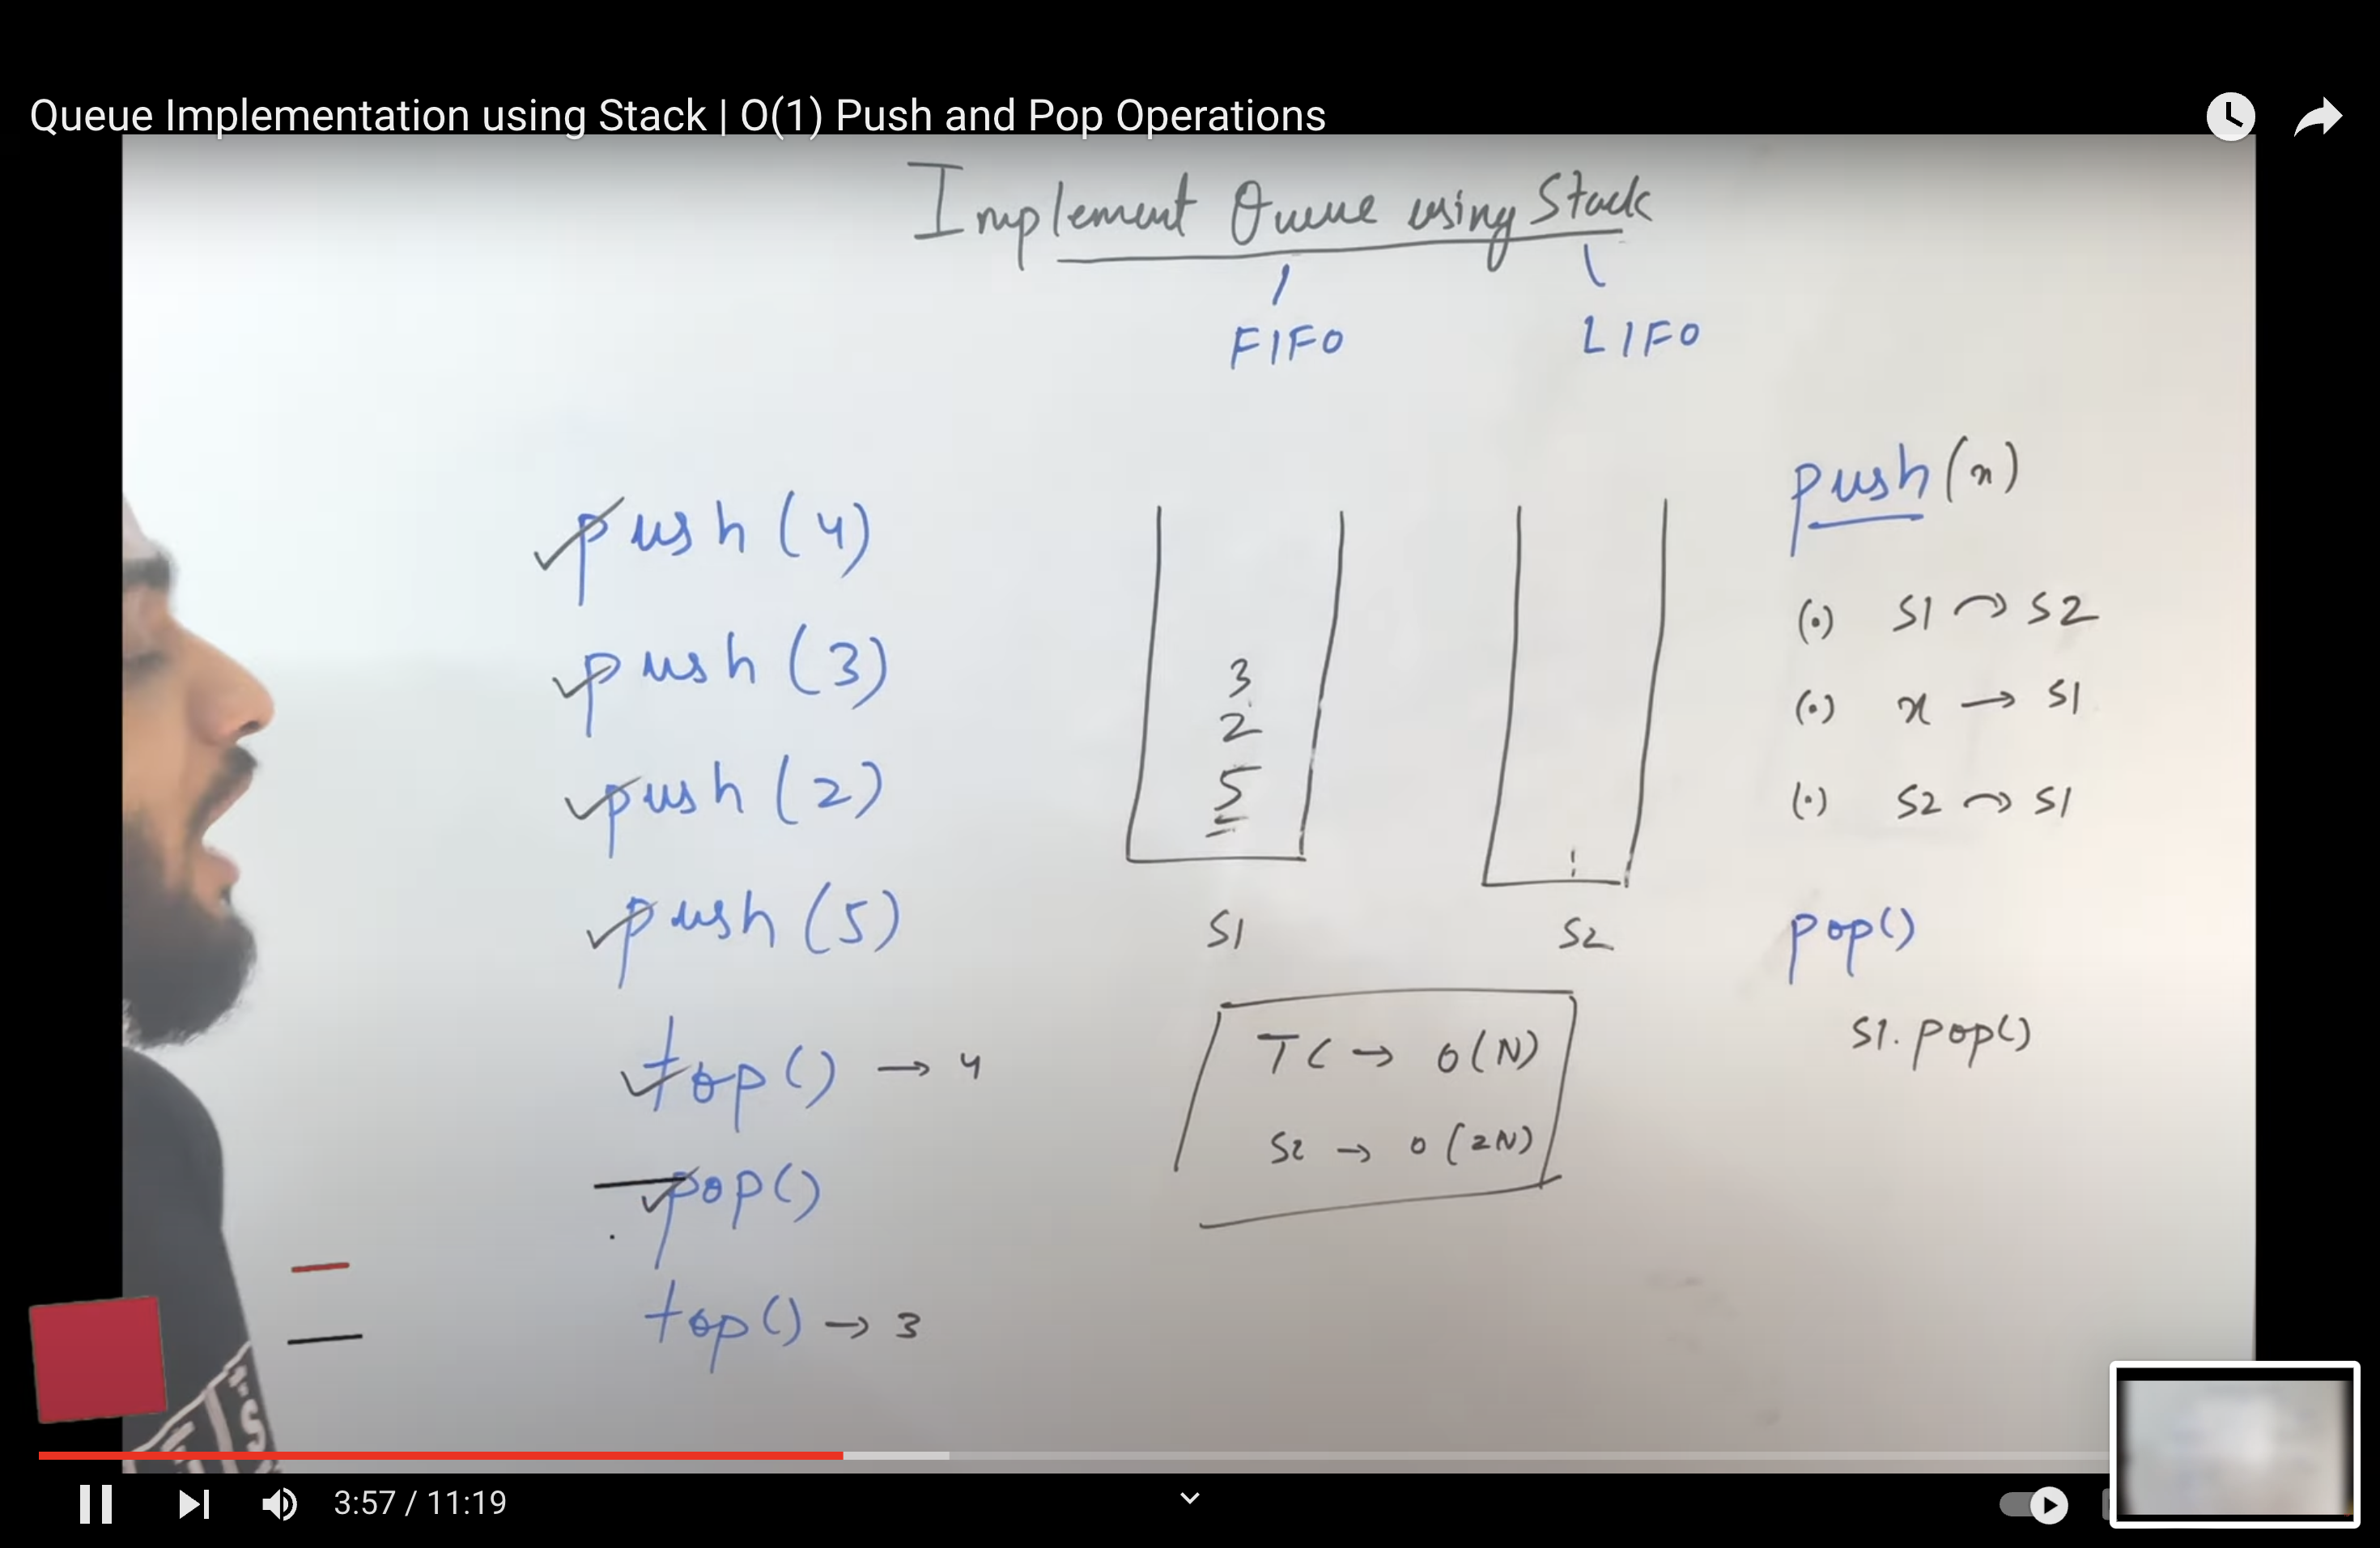 Queue Implementation using Stack | O(1) Push and Pop Operations
Implement Queue using Stack
FIFO
LIFO
push (4)
push (3)
push (2)
push (5)
top () → 4
pop ()
top () → 3
3
2
5
S1
S2
TC → O(N)
S2 → O(2N)
push (n)
(•) S1 ⤳ S2
(•) x → S1
(•) S2 ⤳ S1
pop()
S1. pop()
3:57 / 11:19